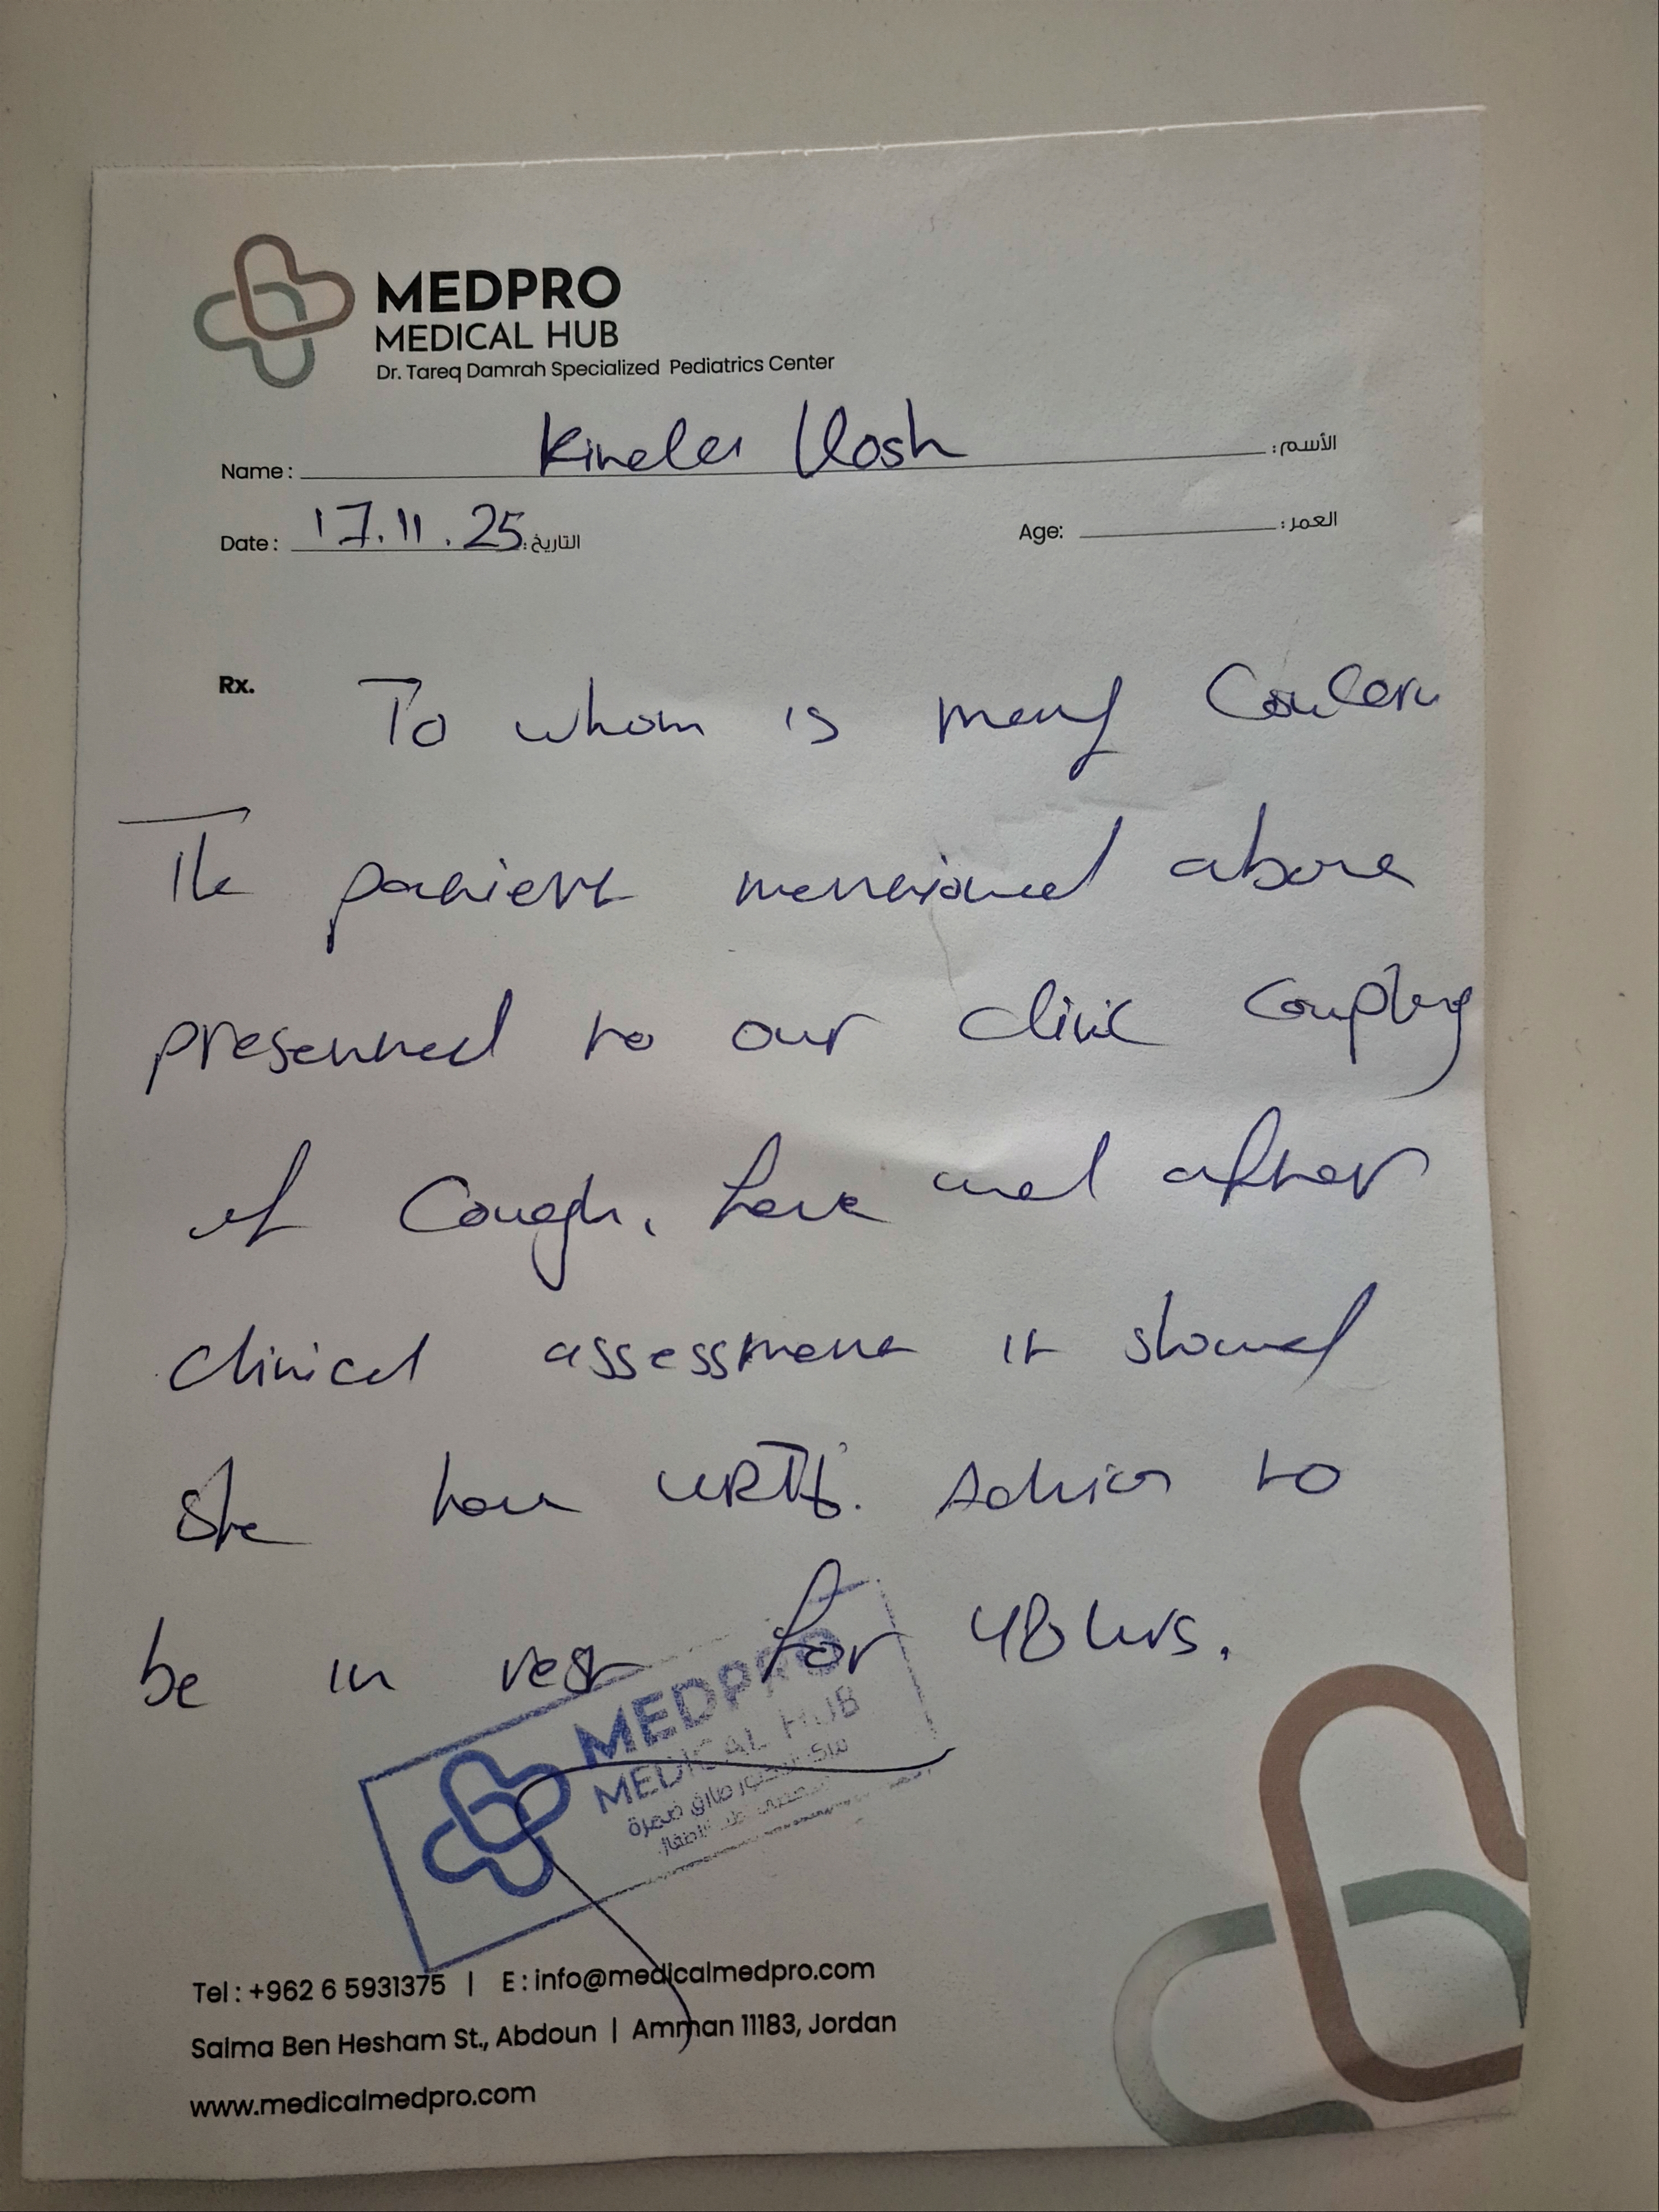 MEDPRO
MEDICAL HUB
Dr. Tareq Damrah Specialized Pediatrics Center
Name: الأسم:
Date: 17.11.25 التاريخ: Age: العمر:
Rx. To whom is may Concern
The patient mentioned above
presented to our clinic
of Cough, and after
clinical assessment it showed
she have URTI. Advice to
be in rest for 48 hrs.
MEDPRO
MEDICAL HUB
مركز الدكتور طارق ضمرة
Tel : +962 6 5931375 | E : info@medicalmedpro.com
Salma Ben Hesham St., Abdoun | Amman 11183, Jordan
www.medicalmedpro.com